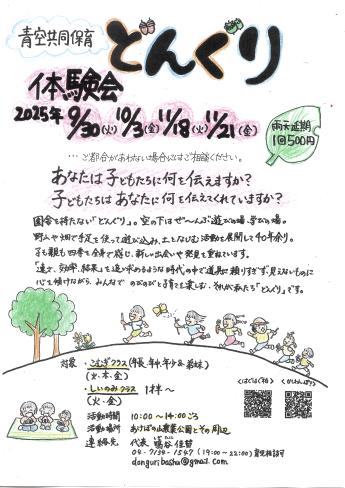 青空共同保育
どんぐり
体験会
2025年 9/30(火) 10/3(金) 11/18(火) 11/21(金)
雨天延期
1回500円
…ご都合があわない場合にはご相談ください。
あなたは子どもたちに何を伝えますか?
子どもたちはあなたに何を伝えてくれていますか?
園舎を持たない「どんぐり」。空の下はぜ〜んぶ遊びの場、学びの場。
野山や畑で手足を使って遊び込み、土となじむ活動を展開して40年余り。
子も親も四季を全身で感じ、新しい出会いや発見を重ねています。
「速さ、効率、結果」を追い求めるような時代の中で道具に頼りすぎず、見えないものに
心を傾けながら、みんなでのびのびと子育てを楽しむ、それが私たち「どんぐり」です。
対象 ・こむぎクラス(年長・年中・年少&弟妹)
(火・木・金)
・しいのみクラス 1才半〜
(火・金)
活動時間 10:00〜14:00ごろ
活動場所 あけぼの山農業公園とその周辺
連絡先 代表 鴨谷佳苗
04-7134-1547 (19:00〜22:00)
donguribashu@gmail.com